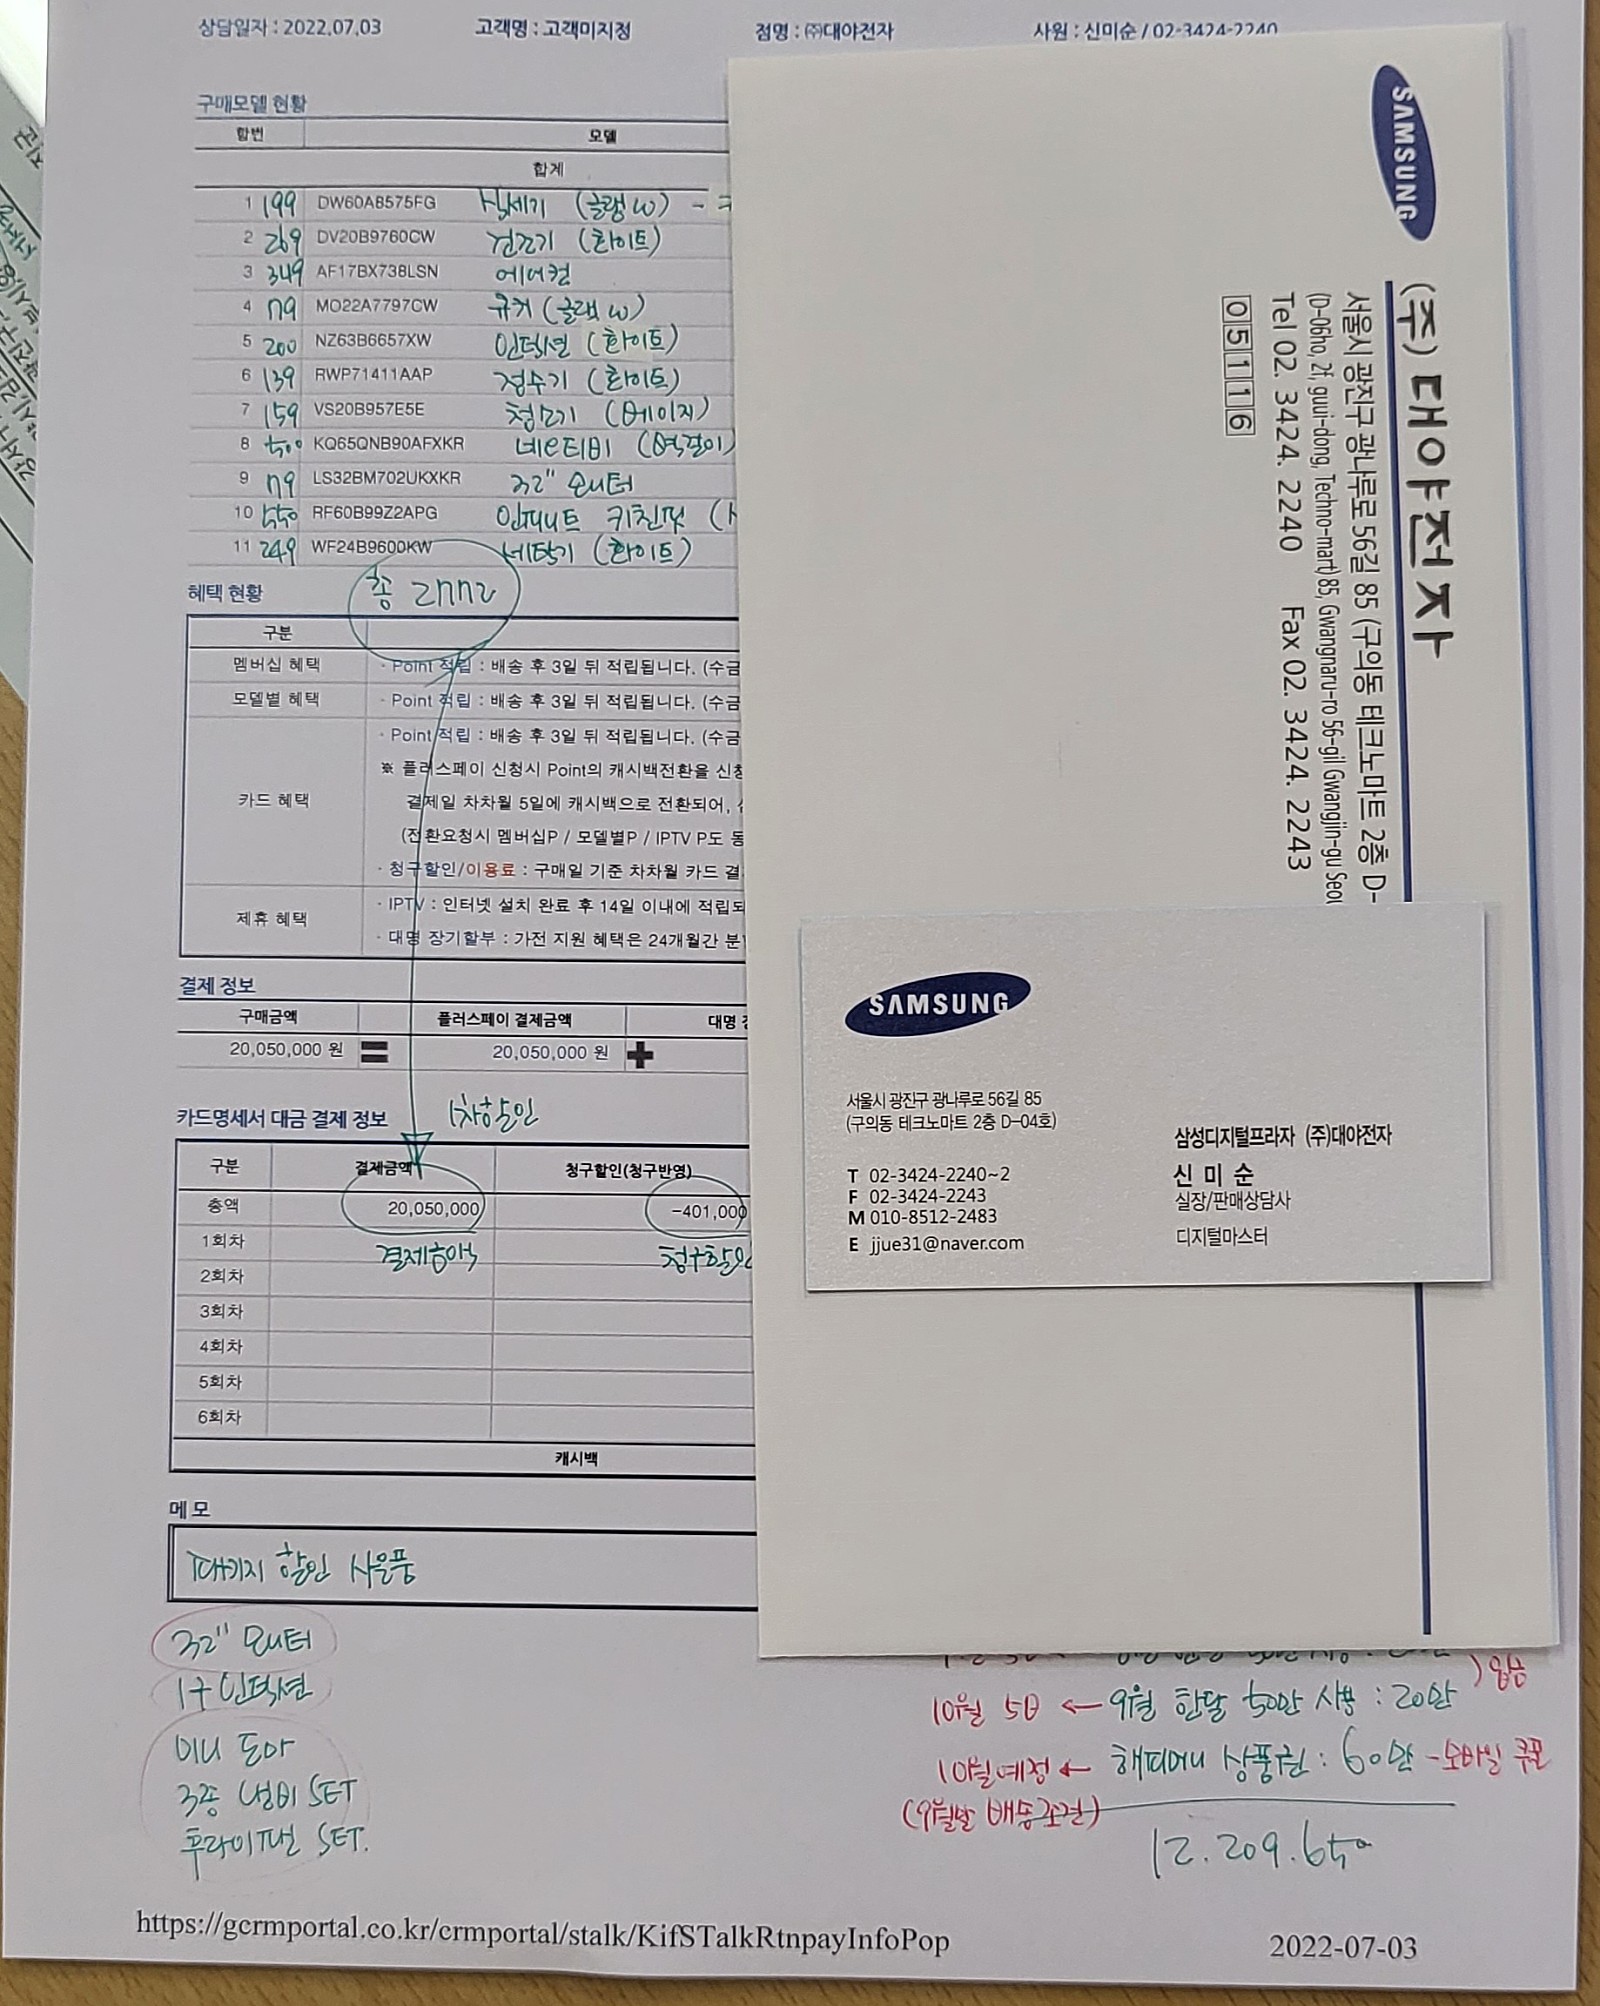 상담일자 : 2022.07.03 고객명 : 고객미지정 점명 : ㈜대야전자 사원 : 신미순 / 02-3424-2240
구매모델 현황
항번 모델
합계
1 199 DW60A8575FG 식세기 (글램 W) -
2 269 DV20B9760CW 건조기 (화이트)
3 349 AF17BX738LSN 에어컨
4 79 MO22A7797CW 큐커 (글램 W)
5 200 NZ63B6657XW 인덕션 (화이트)
6 139 RWP71411AAP 정수기 (화이트)
7 159 VS20B957E5E 청소기 (베이지)
8 500 KQ65QNB90AFXKR 네오티비 (벽걸이)
9 79 LS32BM702UKXKR 32" 모니터
10 550 RF60B99Z2APG 인피니트 키친핏 (
11 249 WF24B9600KW 세탁기 (화이트)
총 2772
혜택 현황
구분
멤버십 혜택 · Point 적립 : 배송 후 3일 뒤 적립됩니다. (수금
모델별 혜택 · Point 적립 : 배송 후 3일 뒤 적립됩니다. (수금
카드 혜택
· Point 적립 : 배송 후 3일 뒤 적립됩니다. (수금
※ 플러스페이 신청시 Point의 캐시백전환을 신청
결제일 차차월 5일에 캐시백으로 전환되어,
(전환요청시 멤버십P / 모델별P / IPTV P도 동
· 청구할인/이용료 : 구매일 기준 차차월 카드 결
제휴 혜택
· IPTV : 인터넷 설치 완료 후 14일 이내에 적립되
· 대명 장기할부 : 가전 지원 혜택은 24개월간 분
결제 정보
구매금액 플러스페이 결제금액 대명
20,050,000 원 = 20,050,000 원 +
카드명세서 대금 결제 정보 1차할인
구분 결제금액 청구할인(청구반영)
총액 20,050,000 -401,000
1회차 결제금액 청구할인
2회차
3회차
4회차
5회차
6회차
캐시백
메 모
패키지 할인 사은품
32" 모니터
1구 인덕션
미니 토마
3종 냄비 SET
후라이팬 SET.
입금
10월 5일 ← 9월 한달 50만 사용 : 20만
10월예정 ← 해피머니 상품권 : 60만 - 모바일 쿠폰
(9월말 배송조건)
12.209.650
https://gcrmportal.co.kr/crmportal/stalk/KifSTalkRtnpayInfoPop
2022-07-03
SAMSUNG
(주) 대야전자
서울시 광진구 광나루로 56길 85 (구의동 테크노마트 2층 D-
(D-06ho, 2f, guui-dong, Techno-mart) 85, Gwangnaru-ro 56-gil Gwangjin-gu Seou
Tel 02. 3424. 2240 Fax 02. 3424. 2243
05116
SAMSUNG
서울시 광진구 광나루로 56길 85
(구의동 테크노마트 2층 D-04호)
T 02-3424-2240~2
F 02-3424-2243
M 010-8512-2483
E jjue31@naver.com
삼성디지털프라자 (주)대야전자
신 미 순
실장/판매상담사
디지털마스터